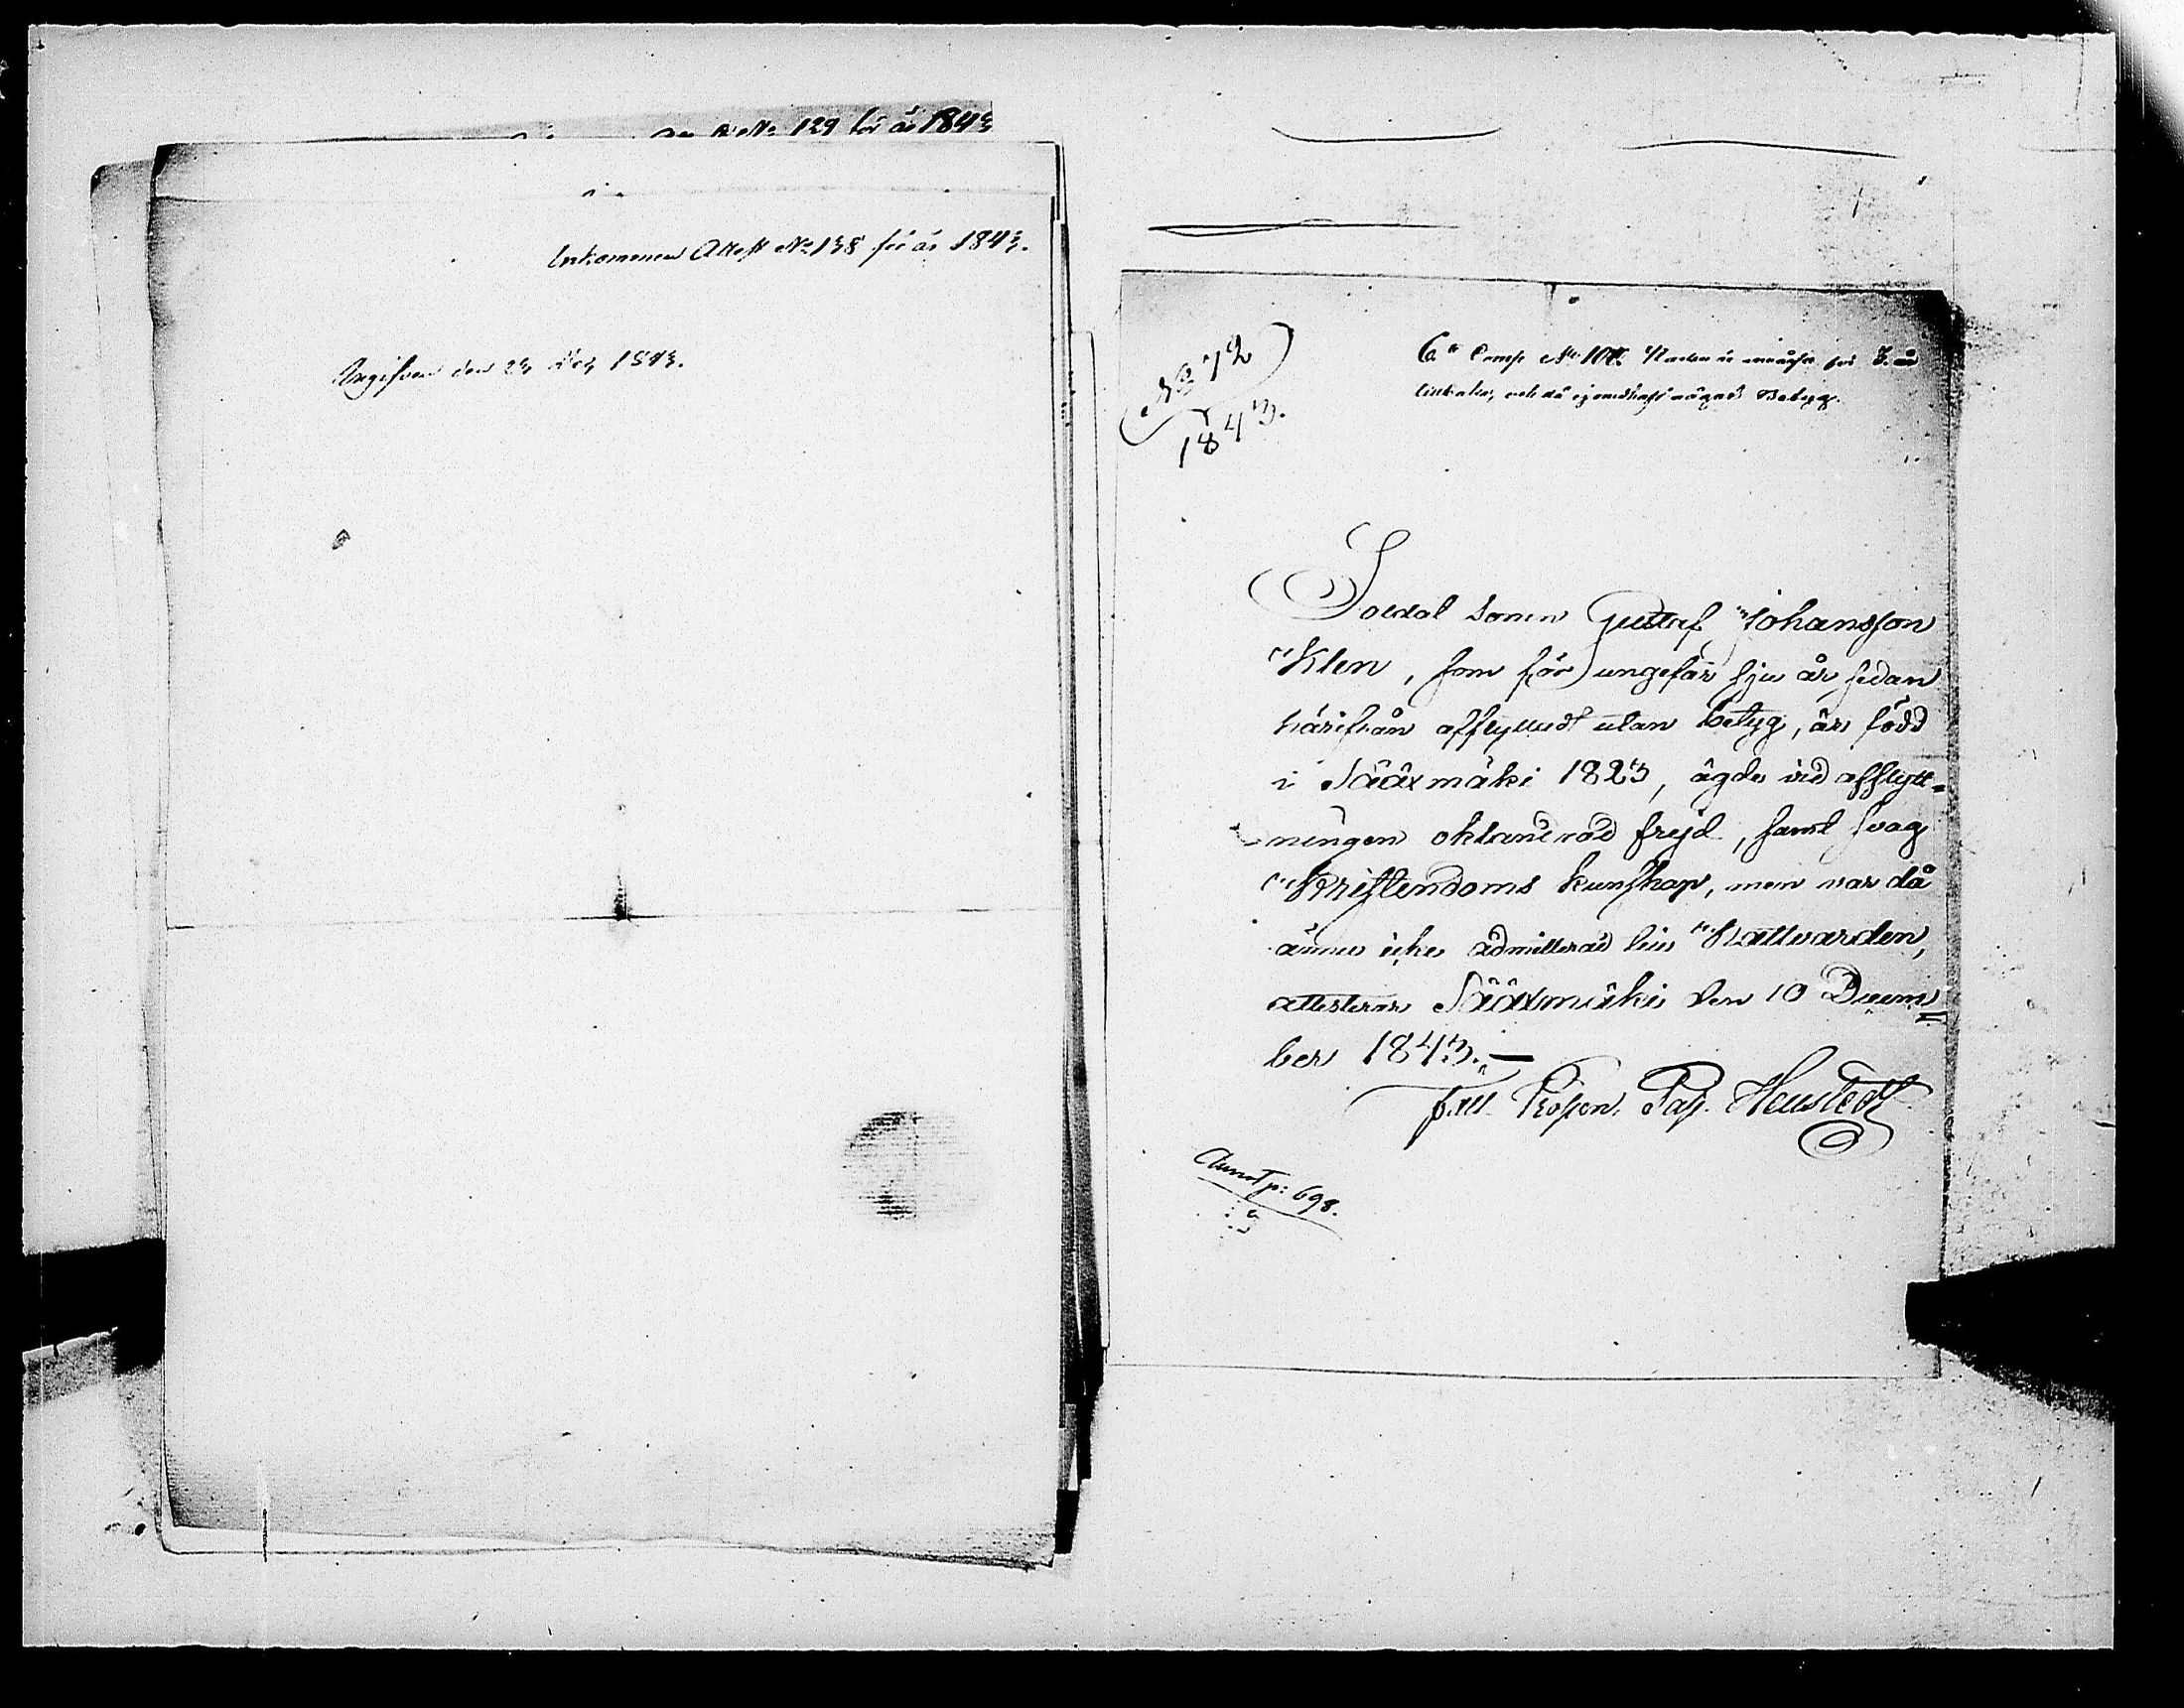 No 129 för år 1843
Inkommen Attest No 138 för år 1843.
Uppgifven den 23 Dec 1843.
No 72
1843.
6te Comp No 108. Karlen är
och då ej medhaft något Betyg.
Soldat sonen Gustaf Johansson
Klen, som för ungefär sju år sedan
härifrån afflyttadt utan betyg, är född
i Sääxmäki 1823, ägde vid afflytt-
ningen oklandrad frejd, samt svag
Kristendoms kunskap, men var då
ännu icke admitterad till Nattvarden,
attesterar Sääxmäki den 10 Decem
ber 1843.—
Past.
Annot p: 698.